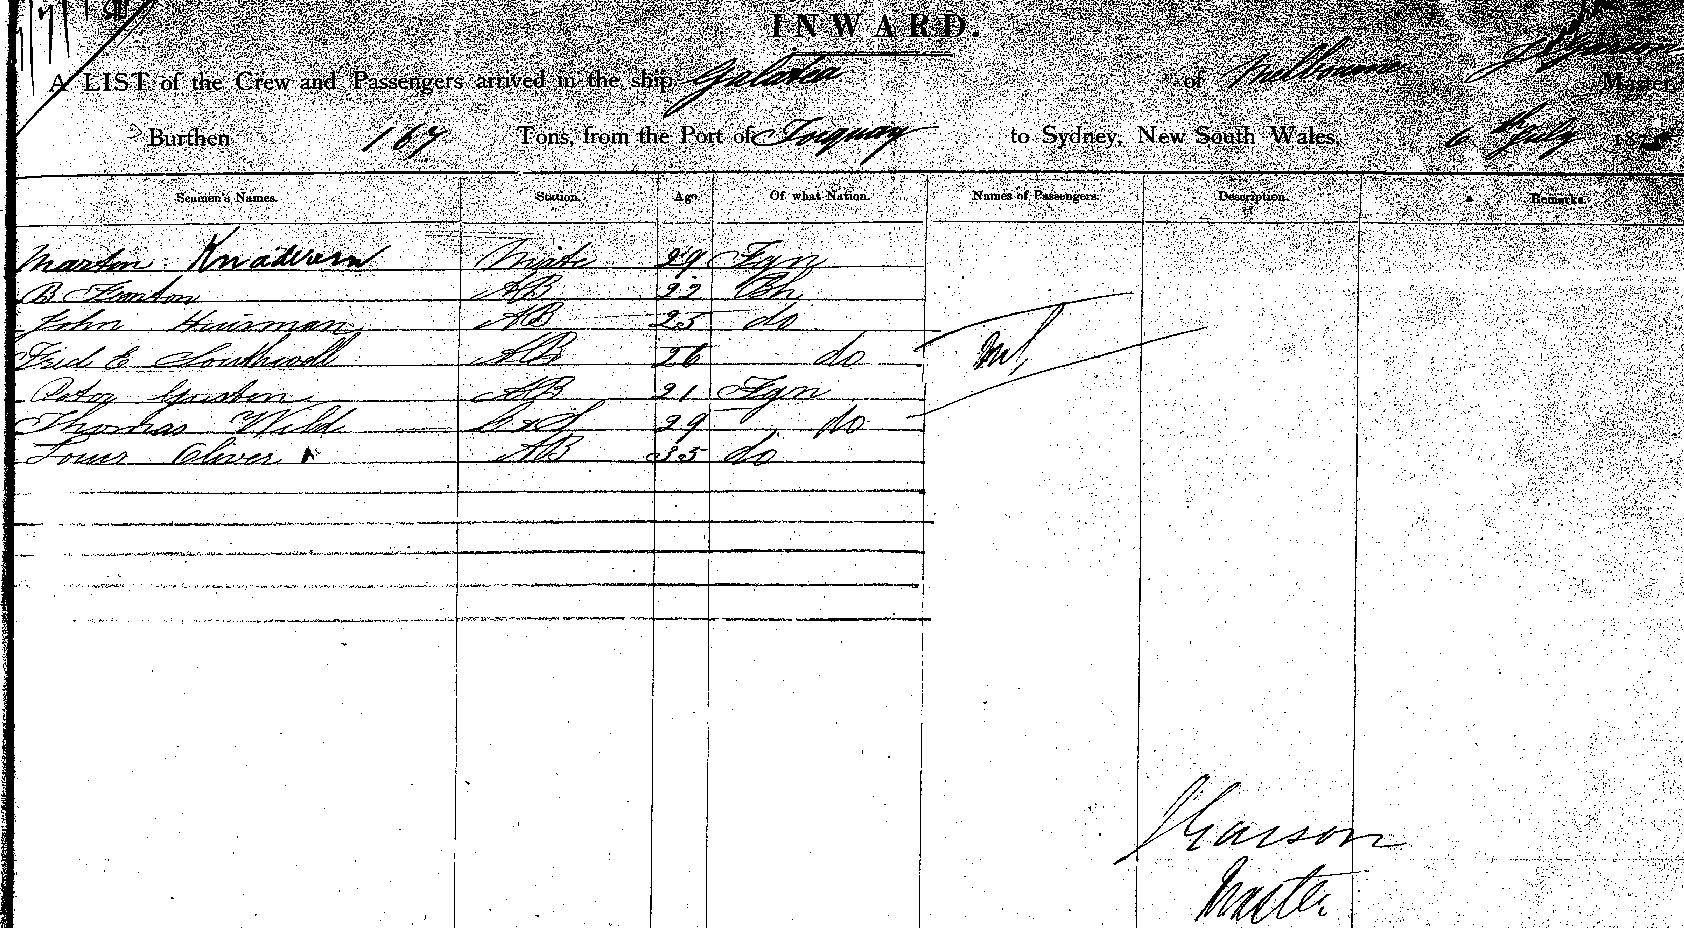 INWARD.
A LIST of the Crew and Passengers arrived in the ship Galatea of Melbourne Master,
Burthen 167 Tons, from the Port of Torquay to Sydney, New South Wales, 6 July
Seamen's Names. Station. Age Of what Nation. Names of Passengers. Description. Remarks.
Martin Mate 29 Fgn
B Fenton AB 22 Bh
John AB 25 do
Fred E Southwell AB 26 do
Peter AB 21 Fgn
Thomas Wild 29 do
Louis Oliver AB 35 do
Master